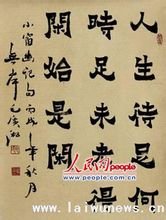 人生待足何
時足未老得
閑始是閑
小窗幽記句丙戌年秋月
人民网
www.laiwunews.cn